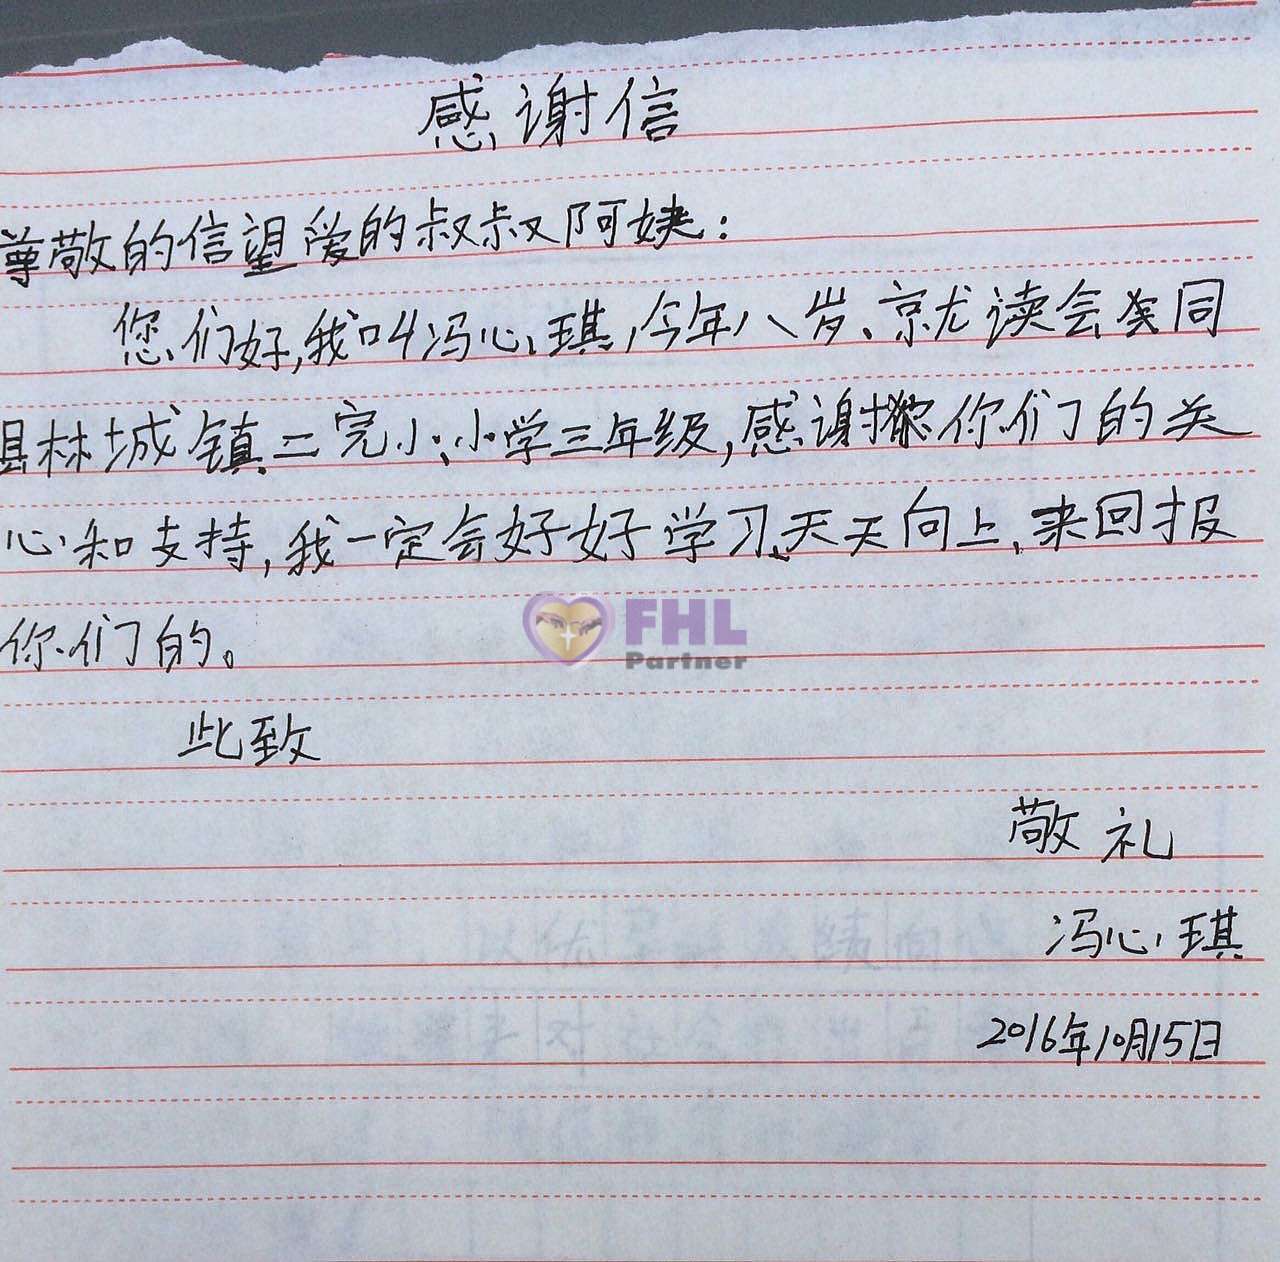 感谢信
尊敬的信望爱的叔叔阿姨:
您们好,我叫冯心琪,今年八岁、就读会同
县林城镇二完小小学三年级,感谢你们的关
心和支持,我一定会好好学习、天天向上、来回报
你们的。
FHL
Partner
此致
敬礼
冯心琪
2016年10月15日